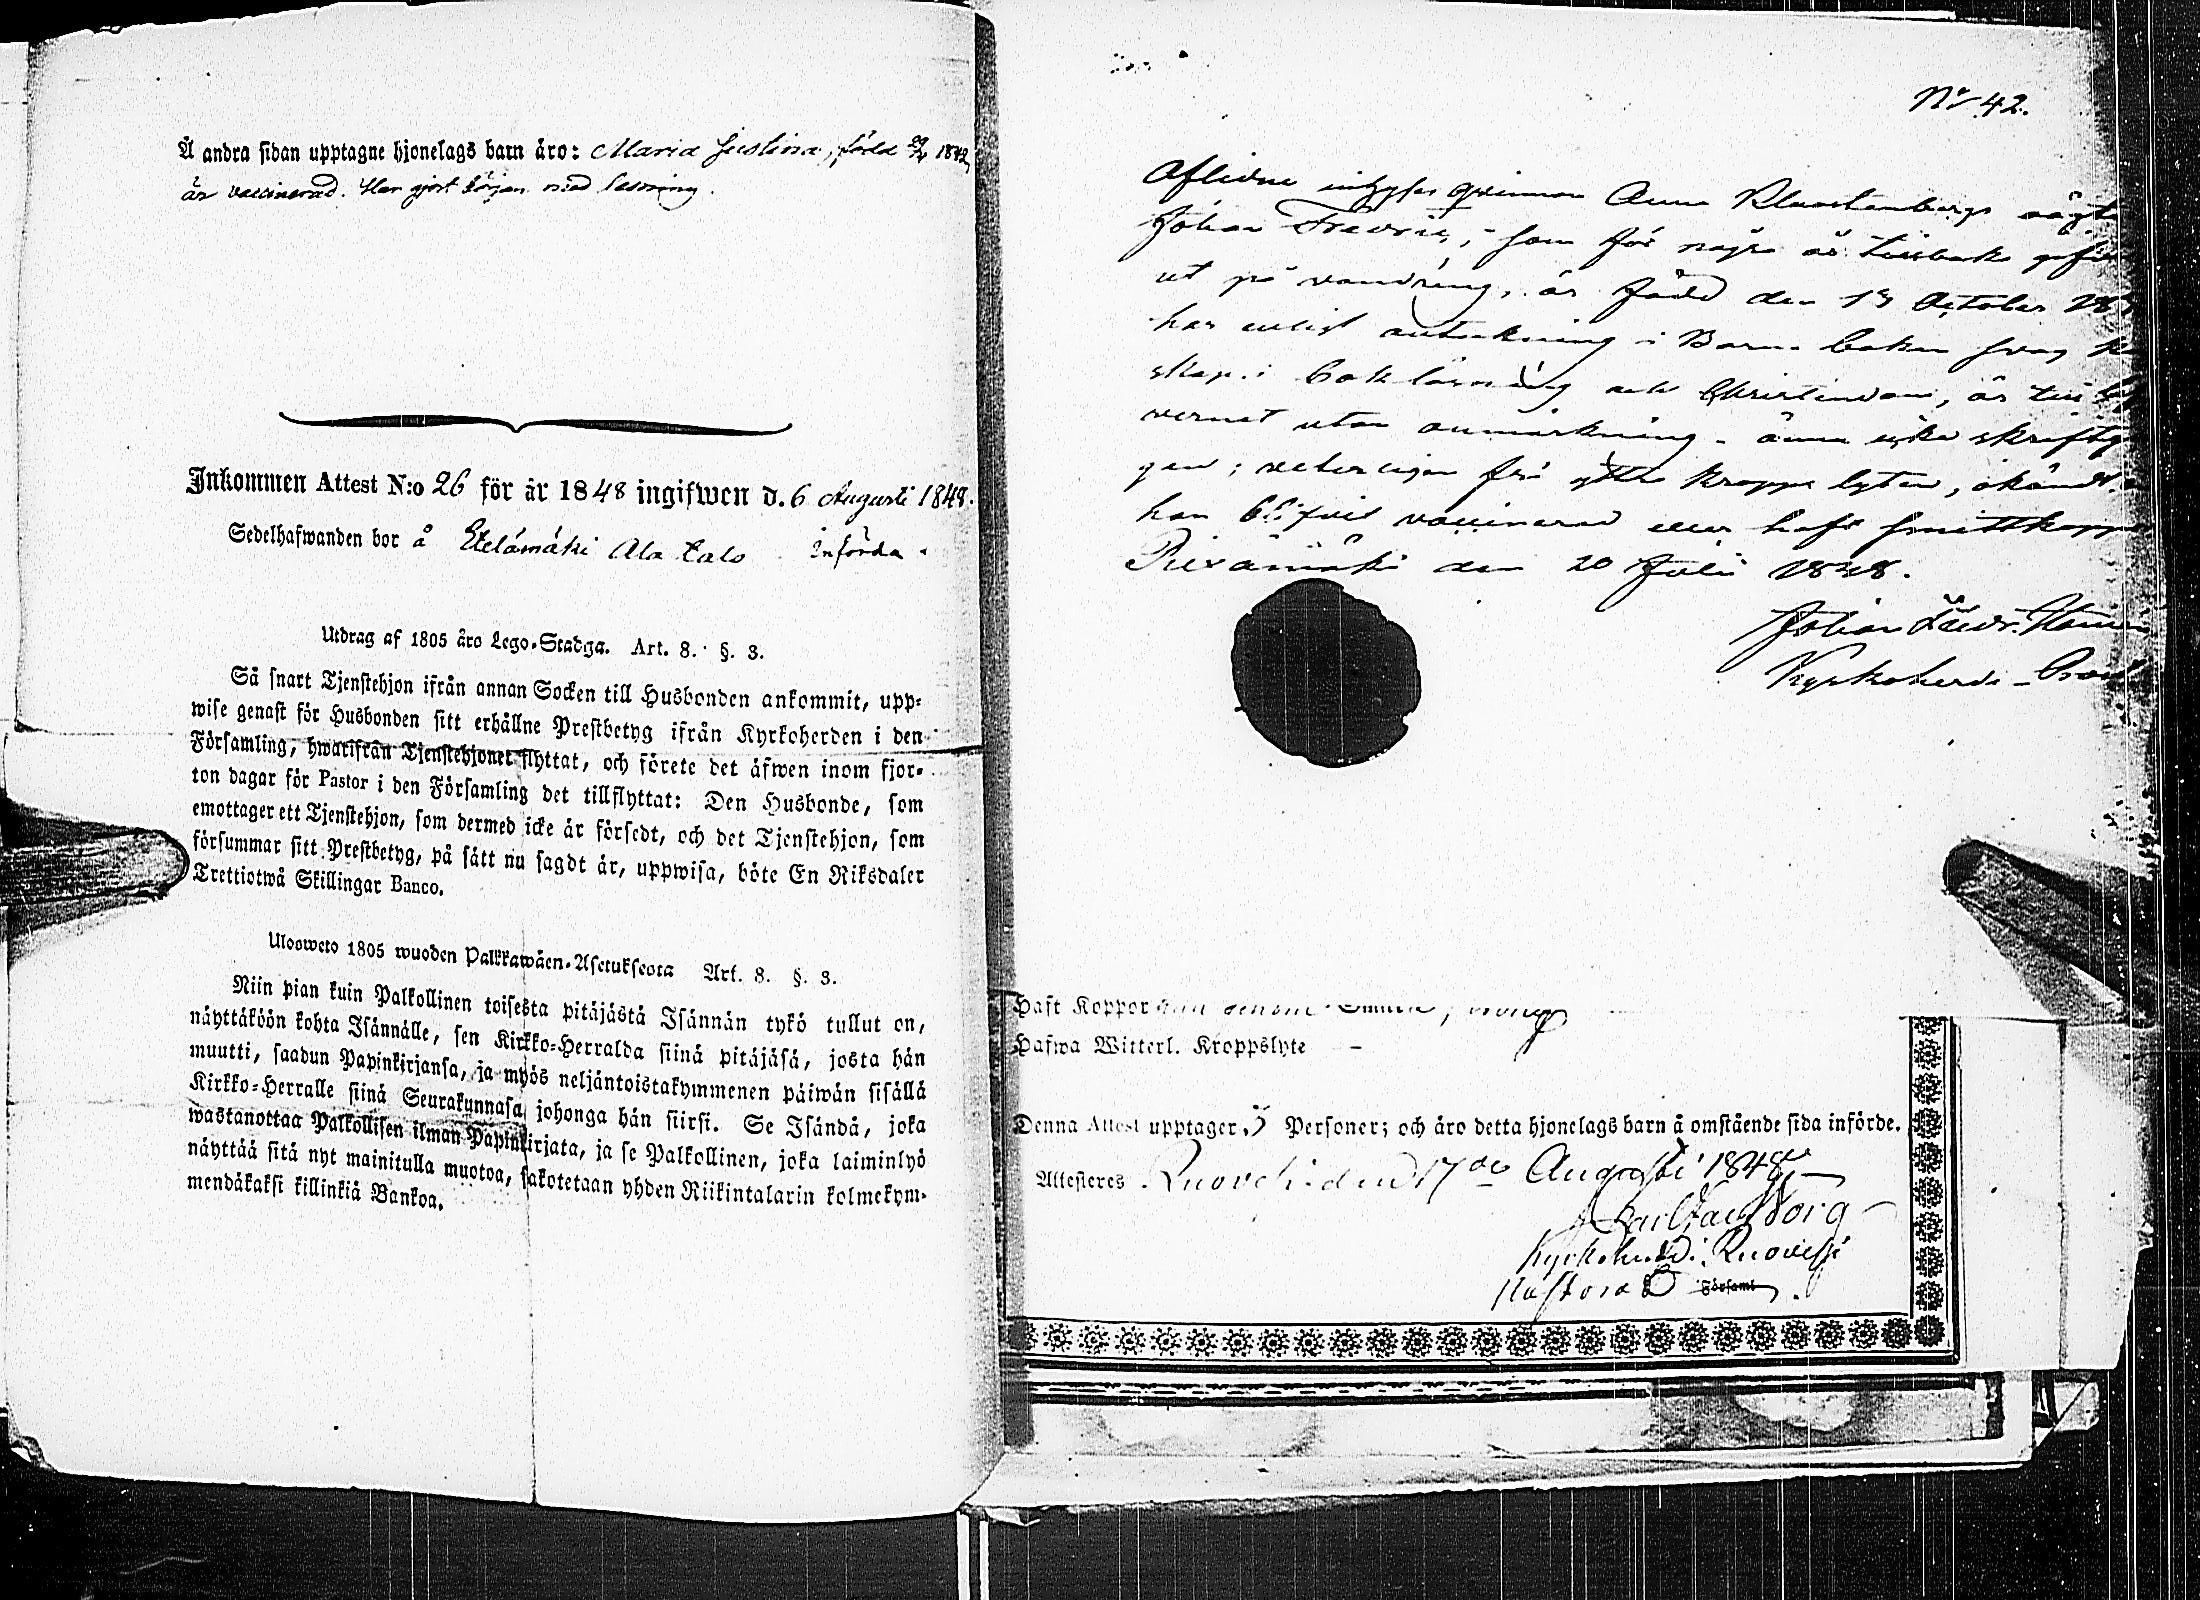 Å andra sidan upptagne hjonelags barn äro: Maria Justina, född 29/4 1842,
är vaccinerad. Har gjort början med läsning.
Inkommen Attest N:o 26 för år 1848 ingifwen d. 6 Augusti 1848.
Sedelhafwanden bor å Etelämäki Ala talo Införda.
Utdrag af 1805 års Lego-Stadga. Art. 8. §. 3.
Så snart Tjenstehjon ifrån annan Socken till Husbonden ankommit, upp-
wise genast för Husbonden sitt erhållne Prestbetyg ifrån Kyrkoherden i den
Församling, hwarifrån Tjenstehjonet flyttat, och förete det äfwen inom fjor-
ton dagar för Pastor i den Församling det tillflyttat: Den Husbonde, som
emottager ett Tjenstehjon, som dermed icke är försedt, och det Tjenstehjon, som
försummar sitt Prestbetyg, på sätt nu sagdt är, uppwisa, böte En Riksdaler
Trettiotwå Skillingar Banco.
Ulosweto 1805 wuoden Palkkawäen-Asetuksesta Art. 8. §. 3.
Niin pian kuin Palkollinen toisesta pitäjästä Isännän tykö tullut on,
näyttäköön kohta Isännälle, sen Kirkko-Herralda siinä pitäjäsä, josta hän
muutti, saadun Papinkirjansa, ja myös neljäntoistakymmenen päiwän sisällä
Kirkko-Herralle siinä Seurakunnasa johonga hän siirsi. Se Isändä, joka
wastanottaa Palkollisen ilman Papinkirjata, ja se Palkollinen, joka laiminlyö
näyttää sitä nyt mainitulla muotoa, sakotetaan yhden Riikintalarin kolmekym-
mendäkaksi killinkiä Bankoa.
No 42.
Aflidne inhyses qvinnan Anna
Johan Fredric, som för några år tillbaka
ut på vandring, är född den 13 October
har enligt anteckning i Barna boken svag
skap i bokläsning och Christendom, är till
vernet utan anmärkning - ännu icke
gen; veterligen fri från yttre kropps lyten, okändt
han blifvit vaccinerad eller haft smittkoppor
den 20 Julii 1848.
Johan
Kyrkoherde
Haft Koppor
Hafwa Witterl. Kroppslyte -
Denna Attest upptager 3 Personer; och äro detta hjonelags barn å omstående sida införde.
Attesteres Ruovesi den 17de Augusti 1848
Carl
Kyrkoherde i Ruovesi
Församl.